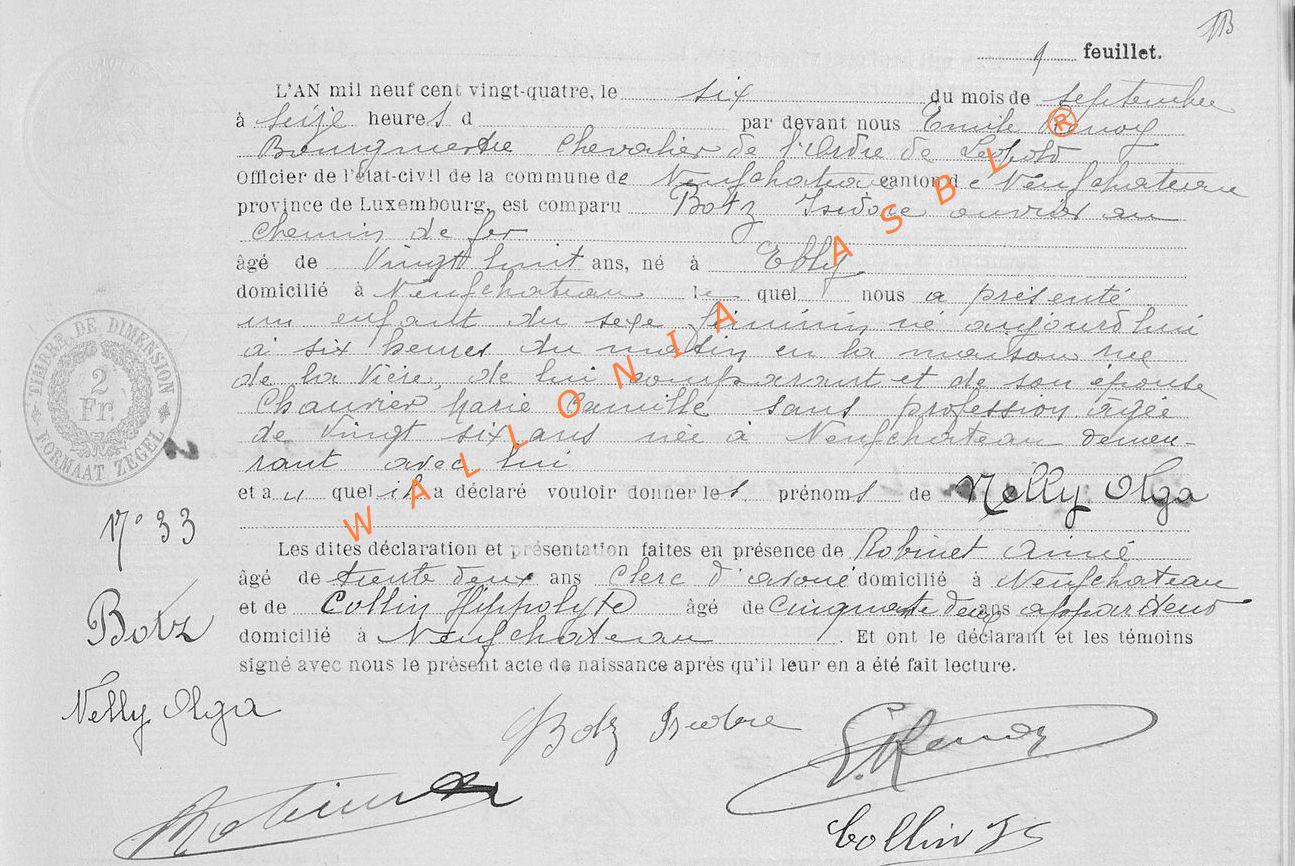 9 feuillet.
L'AN mil neuf cent vingt-quatre, le six du mois de septembre
à seize heures d par devant nous Emile Renoy
Bourgmestre Chevalier de l'Ordre de Léopold
Officier de l'état-civil de la commune de Neufchateau canton de Neufchateau
province de Luxembourg, est comparu Botz Isidore ouvrier au
chemin de fer
âgé de Vingt huit ans, né à Ebly
domicilié à Neufchateau le quel nous a présenté
un enfant du sexe féminin né aujourd'hui
à six heures du matin en la maison rue
de la Vière, de lui comparant et de son épouse
Chauvier Marie Camille sans profession âgée
de vingt six ans née à Neufchateau demeu-
rant avec lui
et au quel il a déclaré vouloir donner les prénoms de Nelly Olga
Les dites déclaration et présentation faites en présence de Robinet Aimé
âgé de trente deux ans clerc d'avoué domicilié à Neufchateau
et de Collin Hippolyte âgé de cinquante deux ans appariteur
domicilié à Neufchateau. Et ont le déclarant et les témoins
signé avec nous le présent acte de naissance après qu'il leur en a été fait lecture.
TIMBRE DE DIMENSION
2
Fr.
FORMAAT ZEGEL
N° 33
Botz
Nelly Olga
Botz Isidore
E. Renoy
Robinet
Collin H
WALLONIA ASBL ®